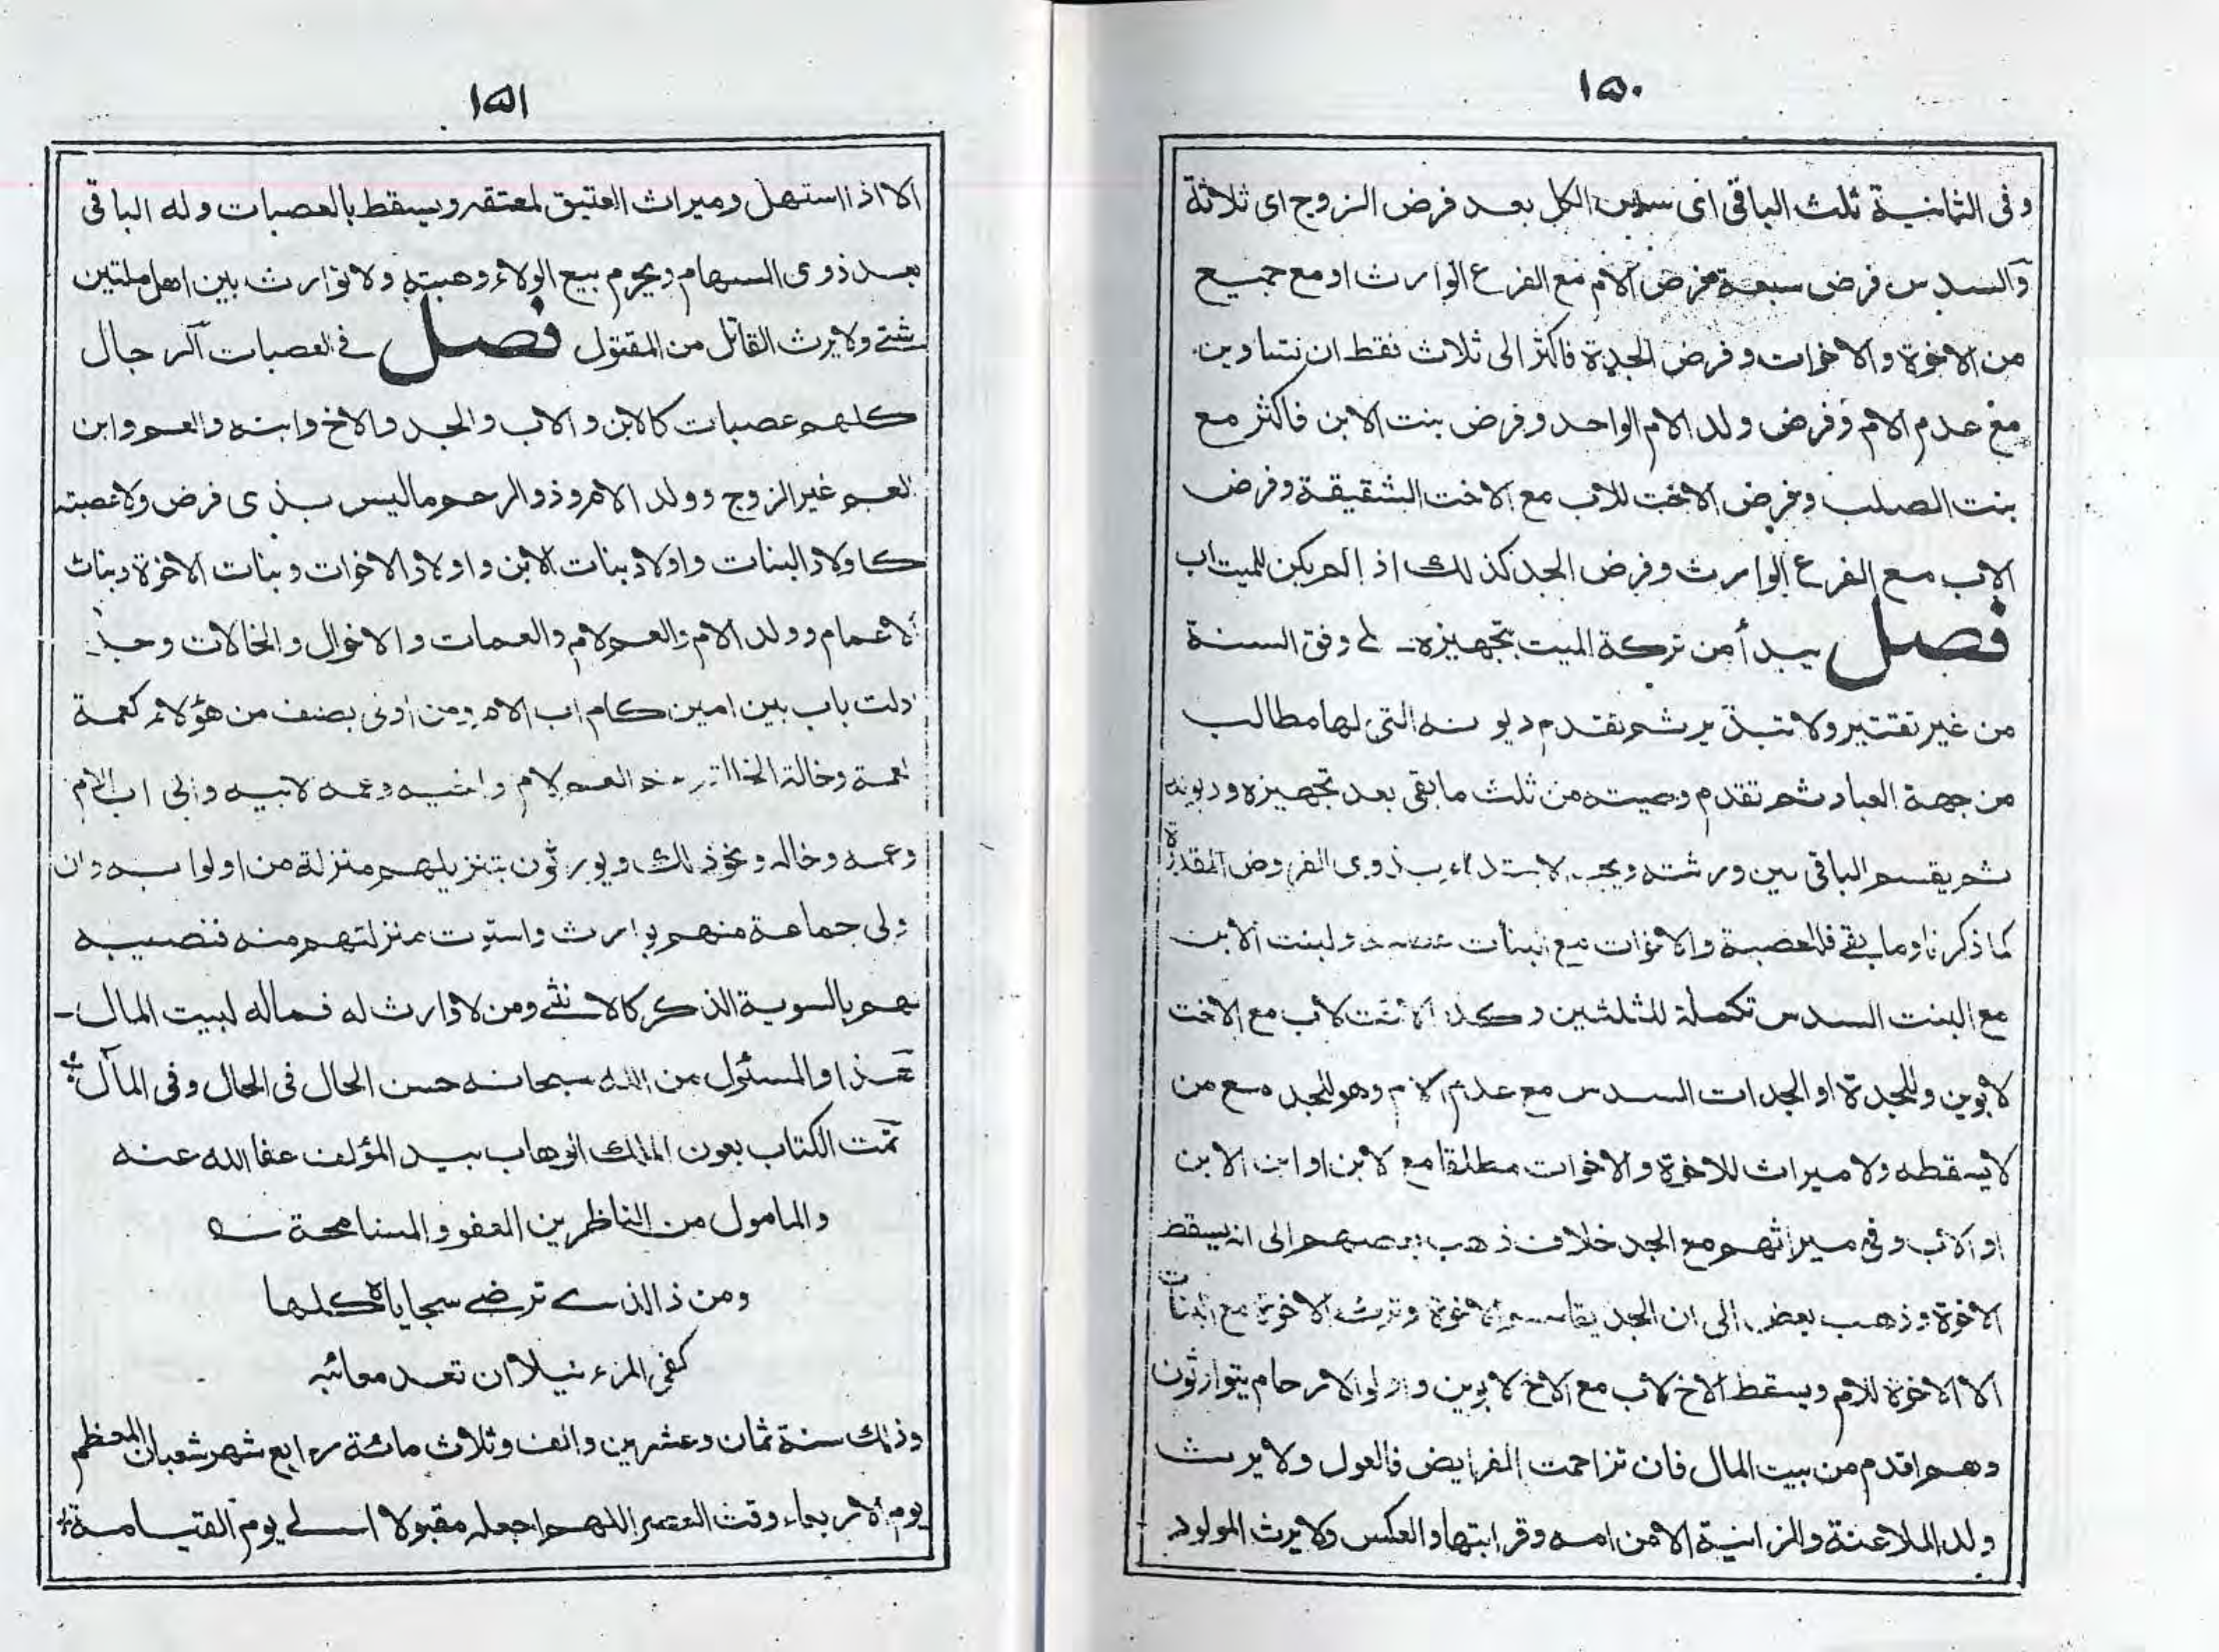 ١٥٠
وفى الثمانية ثلث الباقى اى سدس الكل بعد فرض الزوج اى ثلاثة
والسدس فرض سبعة فرض الام مع الفرع الوارث او مع جميع
من الاخوة والاخوات وفرض الجدة فاكثر الى ثلاث فقط ان تساوين
مع عدم الام وفرض ولد الام الواحد وفرض بنت الابن فاكثر مع
بنت الصلب وفرض الاخت للاب مع الاخت الشقيقة وفرض
الاب مع الفرع الوارث وفرض الجد كذلك اذا لم يكن للميت اب
فصل يبدأ من تركة الميت بتجهيزه على وفق السنة
من غير تقتير ولا تبذير ثم تقدم ديونه التى لها مطالب
من جهة العباد ثم تقدم وصيته من ثلث ما بقى بعد تجهيزه وديونه
ثم يقسم الباقى بين ورثته ويجب الابتداء بذوى الفروض المقدرة
كما ذكرنا وما بقى فللعصبة والاخوات مع البنات عصبة ولبنت الابن
مع البنت السدس تكملة للثلثين وكذا الاخت لاب مع الاخت
لابوين وللجدة او الجدات السدس مع عدم الام وهو للجد مع من
لا يسقطه ولا ميراث للاخوة والاخوات مطلقا مع الابن او ابن الابن
او الاب وفى ميراثهم مع الجد خلاف ذهب بعضهم الى انه يسقط
الاخوة وذهب بعض الى ان الجد يقاسم الاخوة وترث الاخوة مع البنات
الا الاخوة للام ويسقط الاخ لاب مع الاخ لابوين واولوا الارحام يتوارثون
وهم اقدم من بيت المال فان تزاحمت الفرايض فالعول ولا يرث
ولد الملاعنة والزانية الا من امه وقرابتها والعكس ولا يرث المولود
١٥١
الا اذا استهل وميراث العتيق لمعتقه ويسقط بالعصبات وله الباقى
بعد ذوى السهام ويحرم بيع الولاء وهبته ولا توارث بين اهل ملتين
شتى ولا يرث القاتل من المقتول فصل فى العصبات الرجال
كلهم عصبات كالابن والاب والجد والاخ وابنه والعم وابن
العم غير الزوج وولد الام وذو الرحم ما ليس بذى فرض ولا عصبته
كاولاد البنات واولاد بنات الابن واولاد الاخوات وبنات الاخوة وبنات
الاعمام وولد الام والعم لام والعمات والاخوال والخالات وجد
ادلت باب بين امين كام اب الام ومن ادلى بصنف من هؤلاء كعمة
العمة وخالة الخالة العم لام واخيه وعمه لابيه وابى اب الام
وعمه وخاله ونحو ذلك ويورثون بتنزيلهم منزلة من ادلوا به وان
ادلى جماعة منهم بوارث واستوت منزلتهم منه فنصيبه
لهم بالسوية الذكر كالانثى ومن لا وارث له فماله لبيت المال
هذا والمسئول من الله سبحانه حسن الحال فى الحال وفى المآل
تمت الكتاب بعون الملك الوهاب بيد المؤلف عفا الله عنه
والمامول من الناظرين العفو والمسامحة شه
ومن ذا الذى ترضى سجاياه كلها
كفى المرء نبلا ان تعد معائبه
وذلك سنة ثمان وعشرين والف وثلاث مائة رابع شهر شعبان المعظم
يوم الاربعاء وقت العصر اللهم اجعله مقبولا الى يوم القيامة